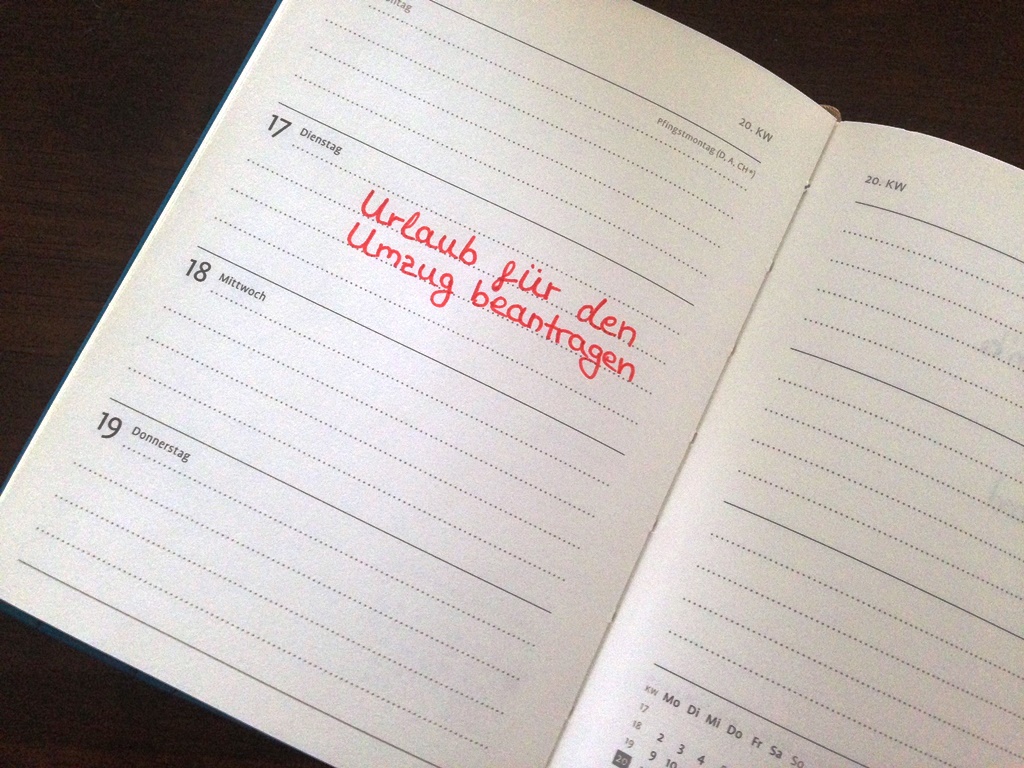 20. KW
Pfingstmontag (D, A, CH*)
17 Dienstag
Urlaub für den
Umzug beantragen
18 Mittwoch
19 Donnerstag
20. KW
KW Mo Di Mi Do Fr Sa So
17
18 2 3 4
19 9 10
20